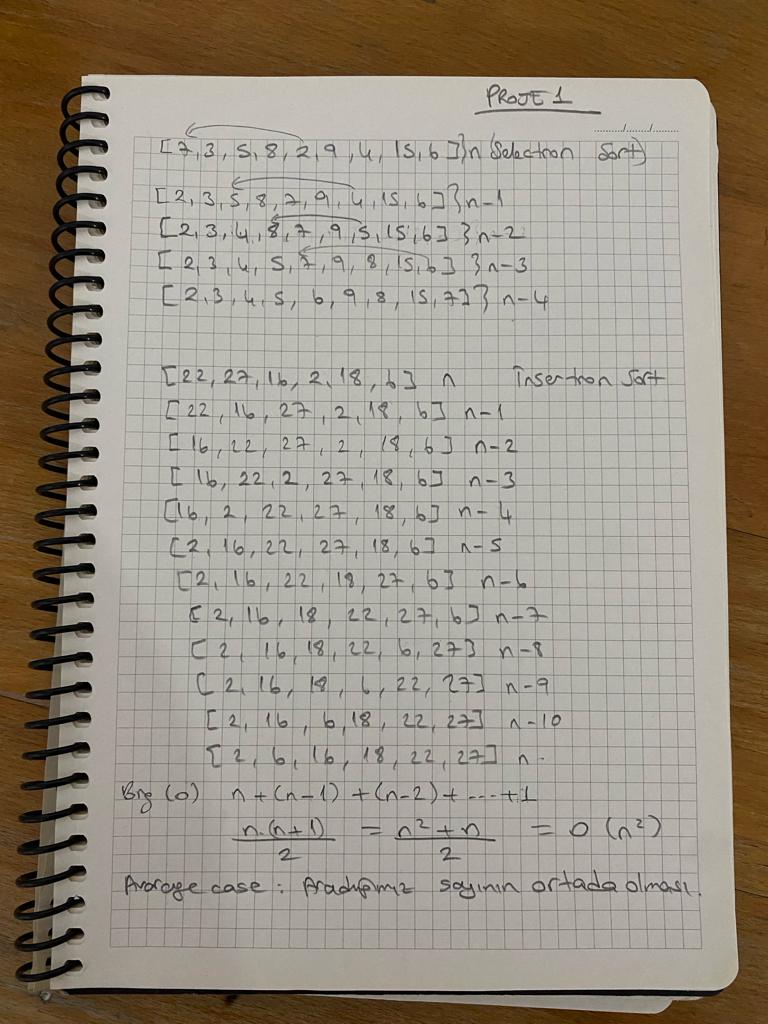 PROJE 1
[7,3,5,8,2,9,4,15,6]}n (Selection Sort)
[2,3,5,8,7,9,4,15,6]}n-1
[2,3,4,8,7,9,5,15,6]}n-2
[2,3,4,5,7,9,8,15,6]}n-3
[2,3,4,5,6,9,8,15,7]}n-4
[22,27,16,2,18,6] n Insertion Sort
[22,16,27,2,18,6] n-1
[16,22,27,2,18,6] n-2
[16,22,2,27,18,6] n-3
[16,2,22,27,18,6] n-4
[2,16,22,27,18,6] n-5
[2,16,22,18,27,6] n-6
[2,16,18,22,27,6] n-7
[2,16,18,22,6,27] n-8
[2,16,18,6,22,27] n-9
[2,16,6,18,22,27] n-10
[2,6,16,18,22,27] n.
Big (O) n+(n-1)+(n-2)+---+1
n.(n+1)/2 = n²+n/2 = O(n²)
Average case : Aradığımız sayının ortada olması.